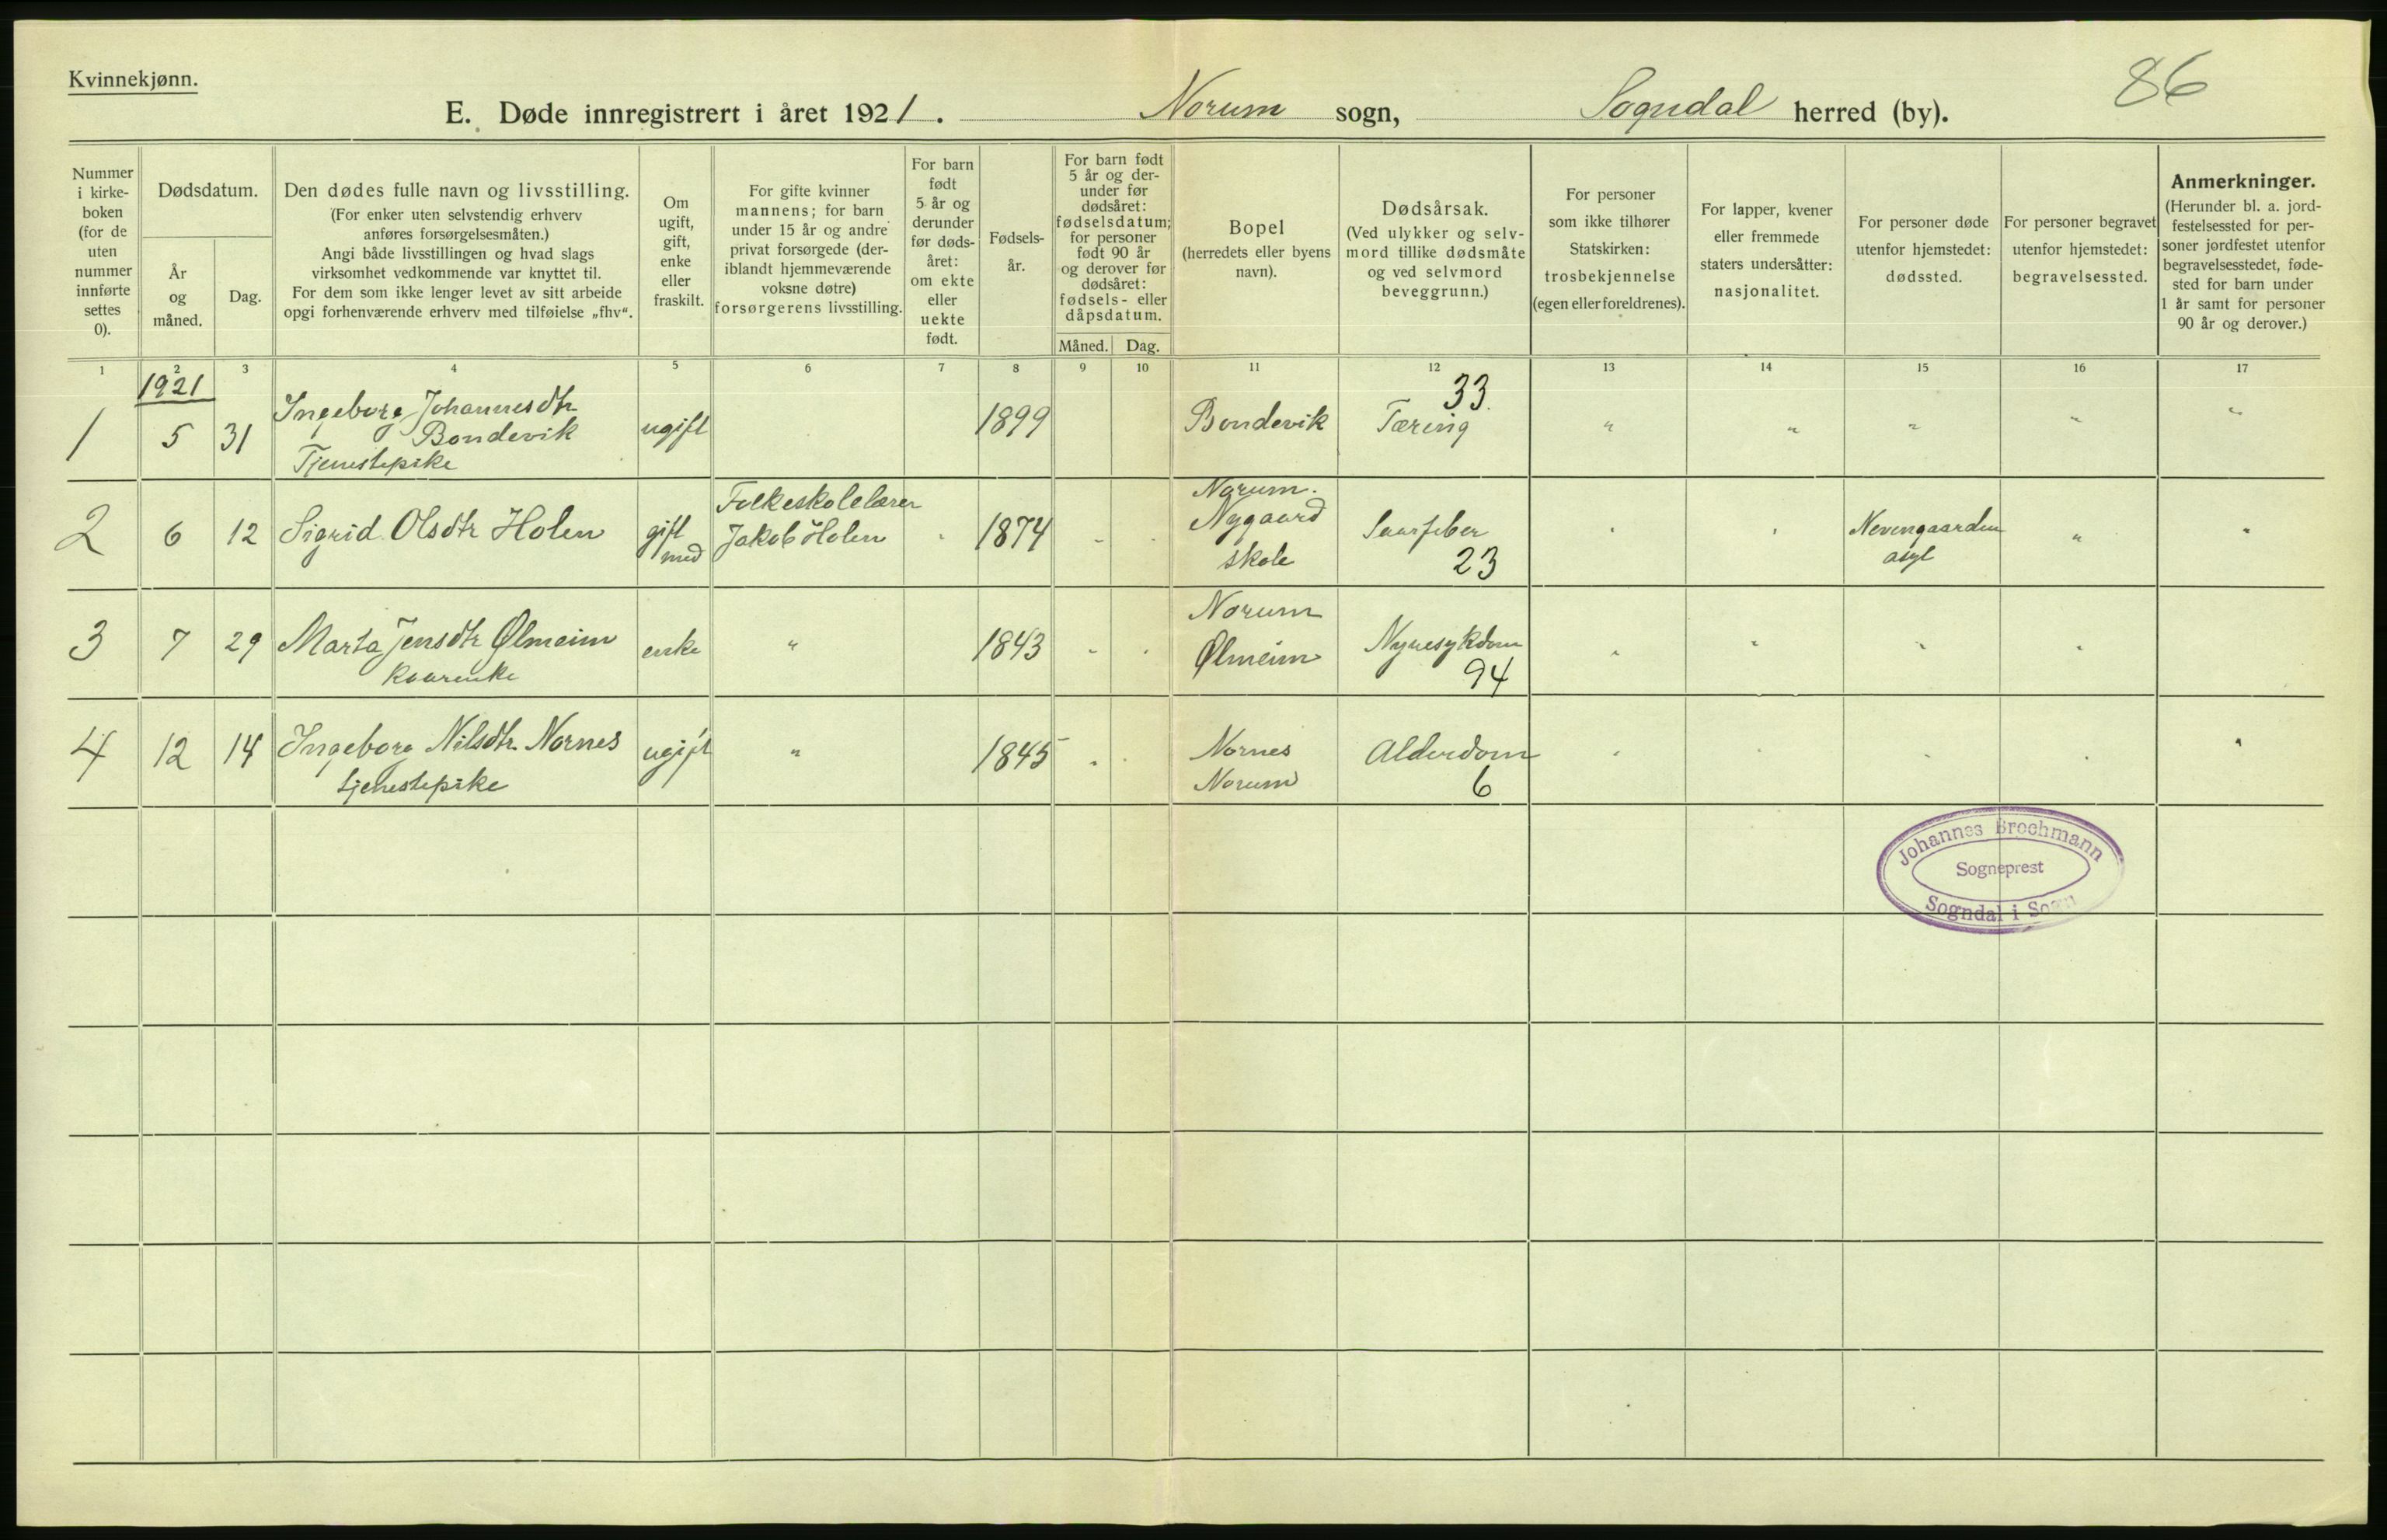 Kvinnekjønn.
86
E. Døde innregistrert i året 1921. Norum sogn, Sogndal herred (by).
Nummer i kirke- boken (for de uten nummer innførte settes 0).
Dødsdatum.
År og måned.
Dag.
Den dødes fulle navn og livsstilling.
(For enker uten selvstendig erhverv
anføres forsørgelsesmåten.)
Angi både livsstillingen og hvad slags
virksomhet vedkommende var knyttet til.
For dem som ikke lenger levet av sitt arbeide
opgi forhenværende erhverv med tilføielse „fhv“.
Om
ugift,
gift,
enke
eller
fraskilt.
For gifte kvinner
mannens; for barn
under 15 år og andre
privat forsørgede (der-
iblandt hjemmeværende
voksne døtre)
forsørgerens livsstilling.
For barn
født
5 år og
derunder
før døds-
året:
om ekte
eller
uekte
født.
Fødsels-
år.
For barn født
5 år og der-
under før
dødsåret:
fødselsdatum;
for personer
født 90 år
og derover før
dødsåret:
fødsels- eller
dåpsdatum.
Måned. Dag.
Bopel
(herredets eller byens
navn).
Dødsårsak.
(Ved ulykker og selv-
mord tillike dødsmåte
og ved selvmord
beveggrunn.)
For personer
som ikke tilhører
Statskirken:
trosbekjennelse
(egen eller foreldrenes).
For lapper, kvener
eller fremmede
staters undersåtter:
nasjonalitet.
For personer døde
utenfor hjemstedet:
dødssted.
For personer begravet
utenfor hjemstedet:
begravelsessted.
Anmerkninger.
(Herunder bl. a. jord-
festelsessted for per-
soner jordfestet utenfor
begravelsesstedet, føde-
sted for barn under
1 år samt for personer
90 år og derover.)
1 2 3 4 5 6 7 8 9 10 11 12 13 14 15 16 17
1921
1 5 31 Ingeborg Johannesdtr
Bondevik
Tjenestepike
ugift 1899 Bondevik Tæring 33. " " " " "
2 6 12 Sigrid Olsdtr Holen
gift
med
Folkeskolelærer
Jakob Holen
1874
Norum.
Nygaard
skole
Saarfeber
23
Nevengaarden
asyl
"
3 7 29 Marta Jensdtr Ølmeim
Kaarenke
enke " 1843
Norum
Ølmeim
Nyresykdom
94
4 12 14 Ingeborg Nilsdtr. Nornes
tjenestepike
ugift " 1845
Nornes
Norum
Alderdom
6
Johannes Brochmann
Sogneprest
Sogndal i Sogn